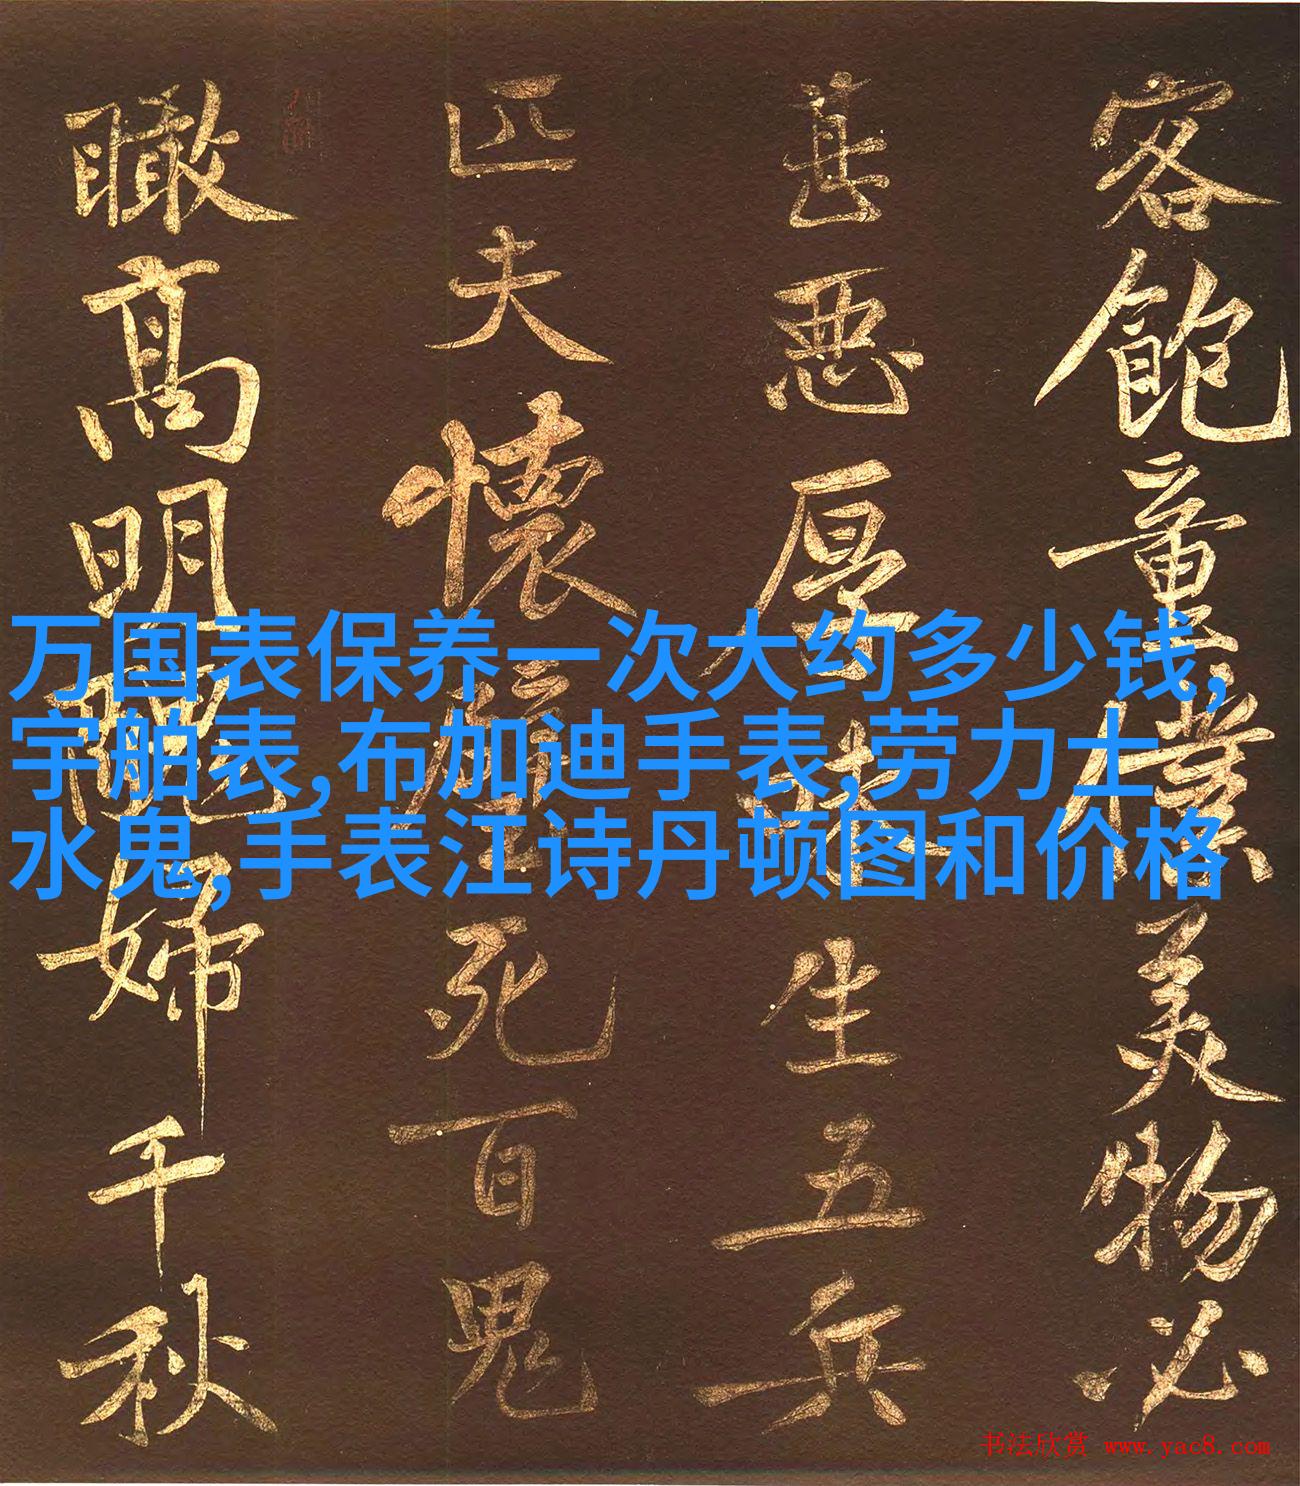 客飽童僕美物必
甚惡厚味生五兵
匹夫懷璧死百鬼
瞰高明婦千秋
万国表保养一次大约多少钱,
宇舶表,布加迪手表,劳力士
水鬼,手表江诗丹顿图和价格
书法欣赏 www.yac8.com